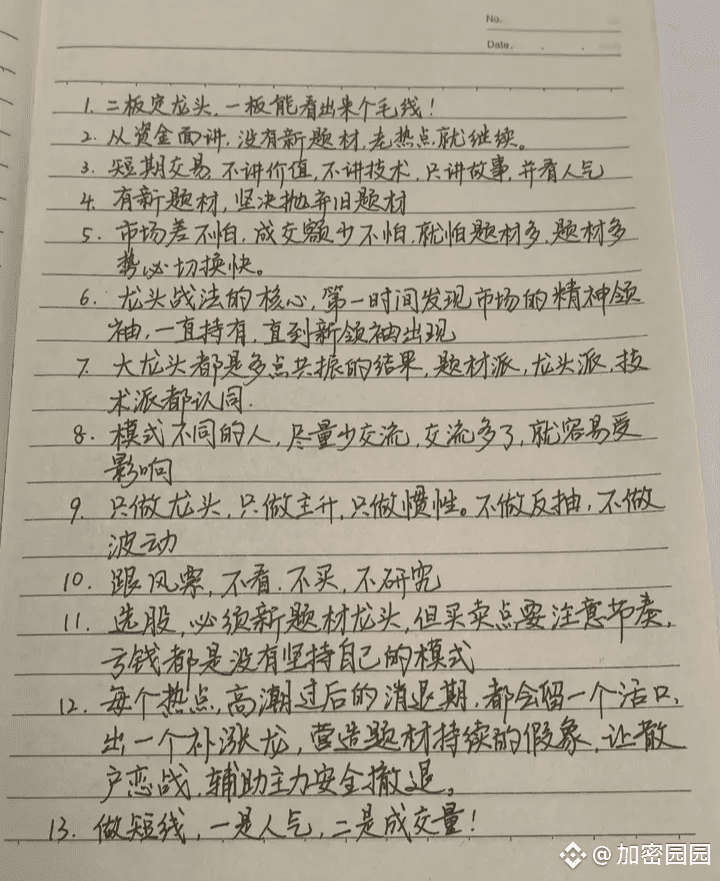 No.
Date.
1. 二板定龙头,一板能看出来个毛线!
2. 从资金面讲,没有新题材,老热点就继续。
3. 短期交易,不讲价值,不讲技术,只讲故事,并看人气
4. 有新题材,坚决抛弃旧题材
5. 市场差不怕,成交额少不怕,就怕题材多,题材多
势必切换快。
6. 龙头战法的核心,第一时间发现市场的精神领
袖,一直持有,直到新领袖出现
7. 大龙头都是多点共振的结果,题材派,龙头派,技
术派都认同.
8. 模式不同的人,尽量少交流,交流多了,就容易受
影响
9. 只做龙头,只做主升,只做惯性。不做反抽,不做
波动
10. 跟风票,不看.不买,不研究
11. 选股,必须新题材龙头,但买卖点要注意节奏,
亏钱都是没有坚持自己的模式
12. 每个热点,高潮过后的消退期,都会留一个活口,
出一个补涨龙,营造题材持续的假象,让散
户恋战,辅助主力安全撤退。
13. 做短线,一是人气,二是成交量!
@加密园园